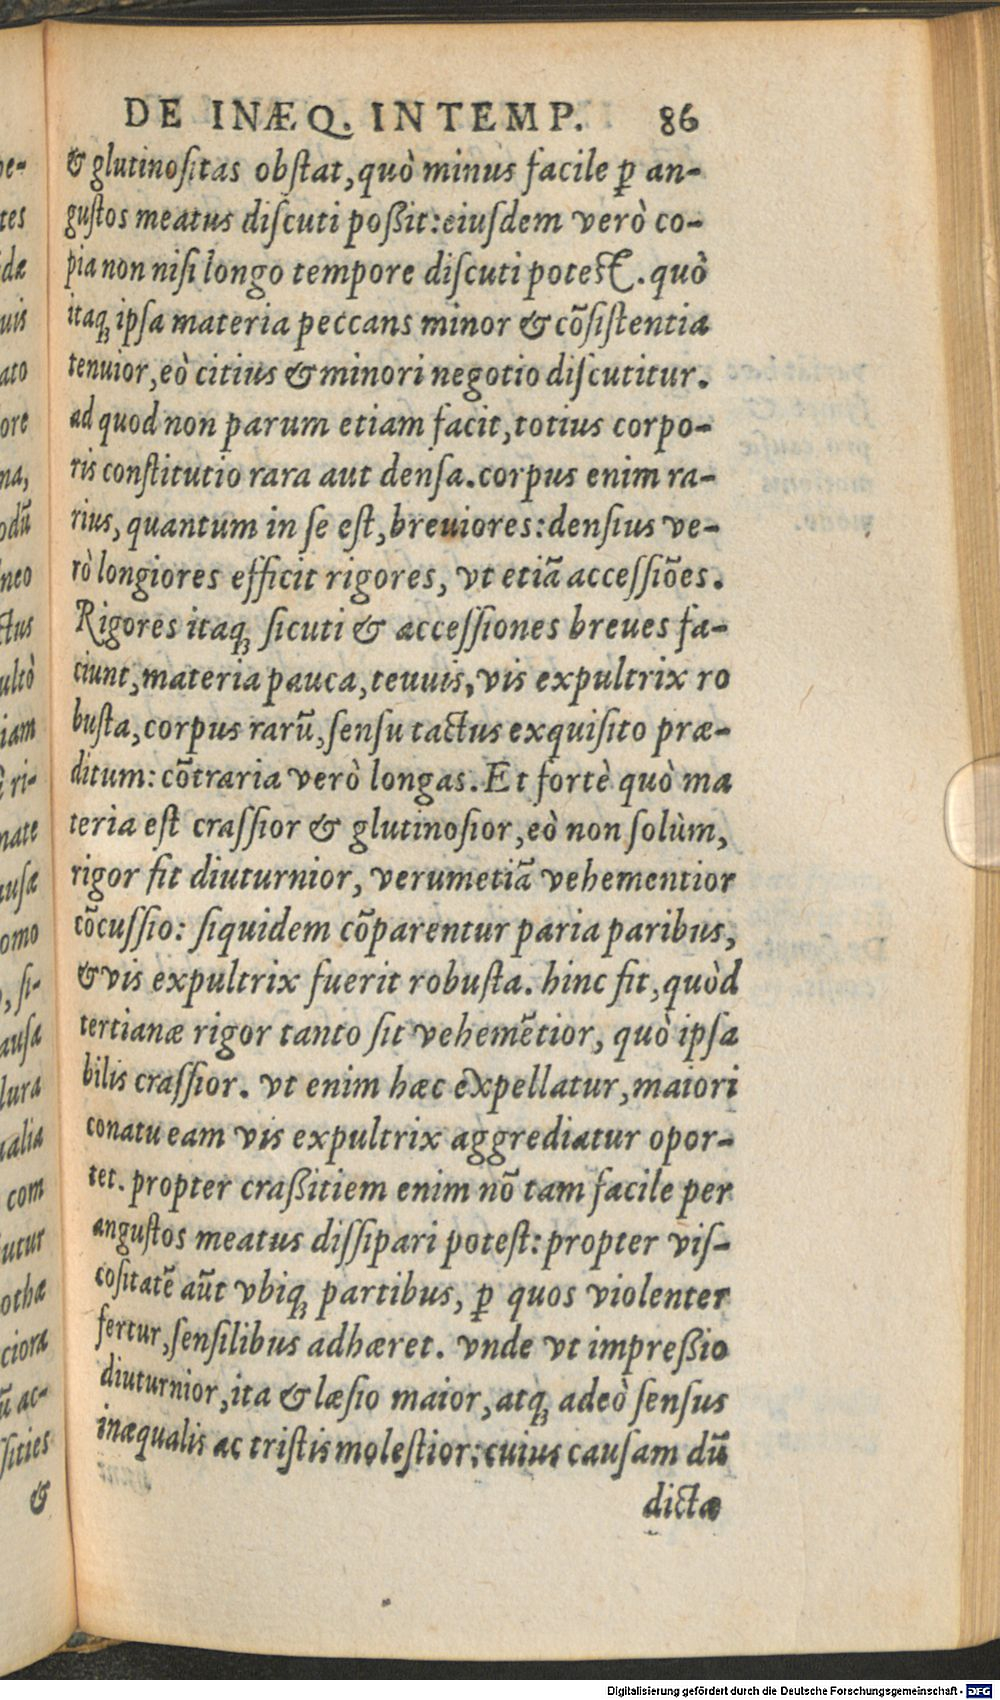 DE INÆQ. INTEMP. 86
& glutinoſitas obſtat, quò minus facile ꝑ an-
guſtos meatus diſcuti poßit: eiuſdem verò co-
pia non niſi longo tempore diſcuti poteſt. quò
itaq; ipſa materia peccans minor & cōſiſtentia
tenuior, eò citius & minori negotio diſcutitur.
ad quod non parum etiam facit, totius corpo-
ris conſtitutio rara aut denſa. corpus enim ra-
rius, quantum in ſe eſt, breuiores: denſius ve-
rò longiores efficit rigores, vt etiā acceſſiōes.
Rigores itaq; ſicuti & acceſſiones breues fa-
ciunt, materia pauca, teuuis, vis expultrix ro
buſta, corpus rarū, ſenſu tactus exquiſito præ-
ditum: cōtraria verò longas. Et fortè quò ma
teria eſt craſſior & glutinoſior, eò non ſolùm,
rigor fit diuturnior, verumetiā vehementior
cōcuſſio: ſiquidem cōparentur paria paribus,
& vis expultrix fuerit robuſta. hinc fit, quòd
tertianæ rigor tanto ſit vehemētior, quò ipſa
bilis craſſior. vt enim hæc expellatur, maiori
conatu eam vis expultrix aggrediatur opor-
tet. propter craßitiem enim nō tam facile per
anguſtos meatus diſſipari poteſt: propter viſ-
coſitatē aūt vbiq; partibus, ꝑ quos violenter
fertur, ſenſilibus adhæret. vnde vt impreßio
diuturnior, ita & læſio maior, atq; adeò ſenſus
inæqualis ac triſtis moleſtior: cuius cauſam dū
dictæ
Digitalisierung gefördert durch die Deutsche Forschungsgemeinschaft - DFG